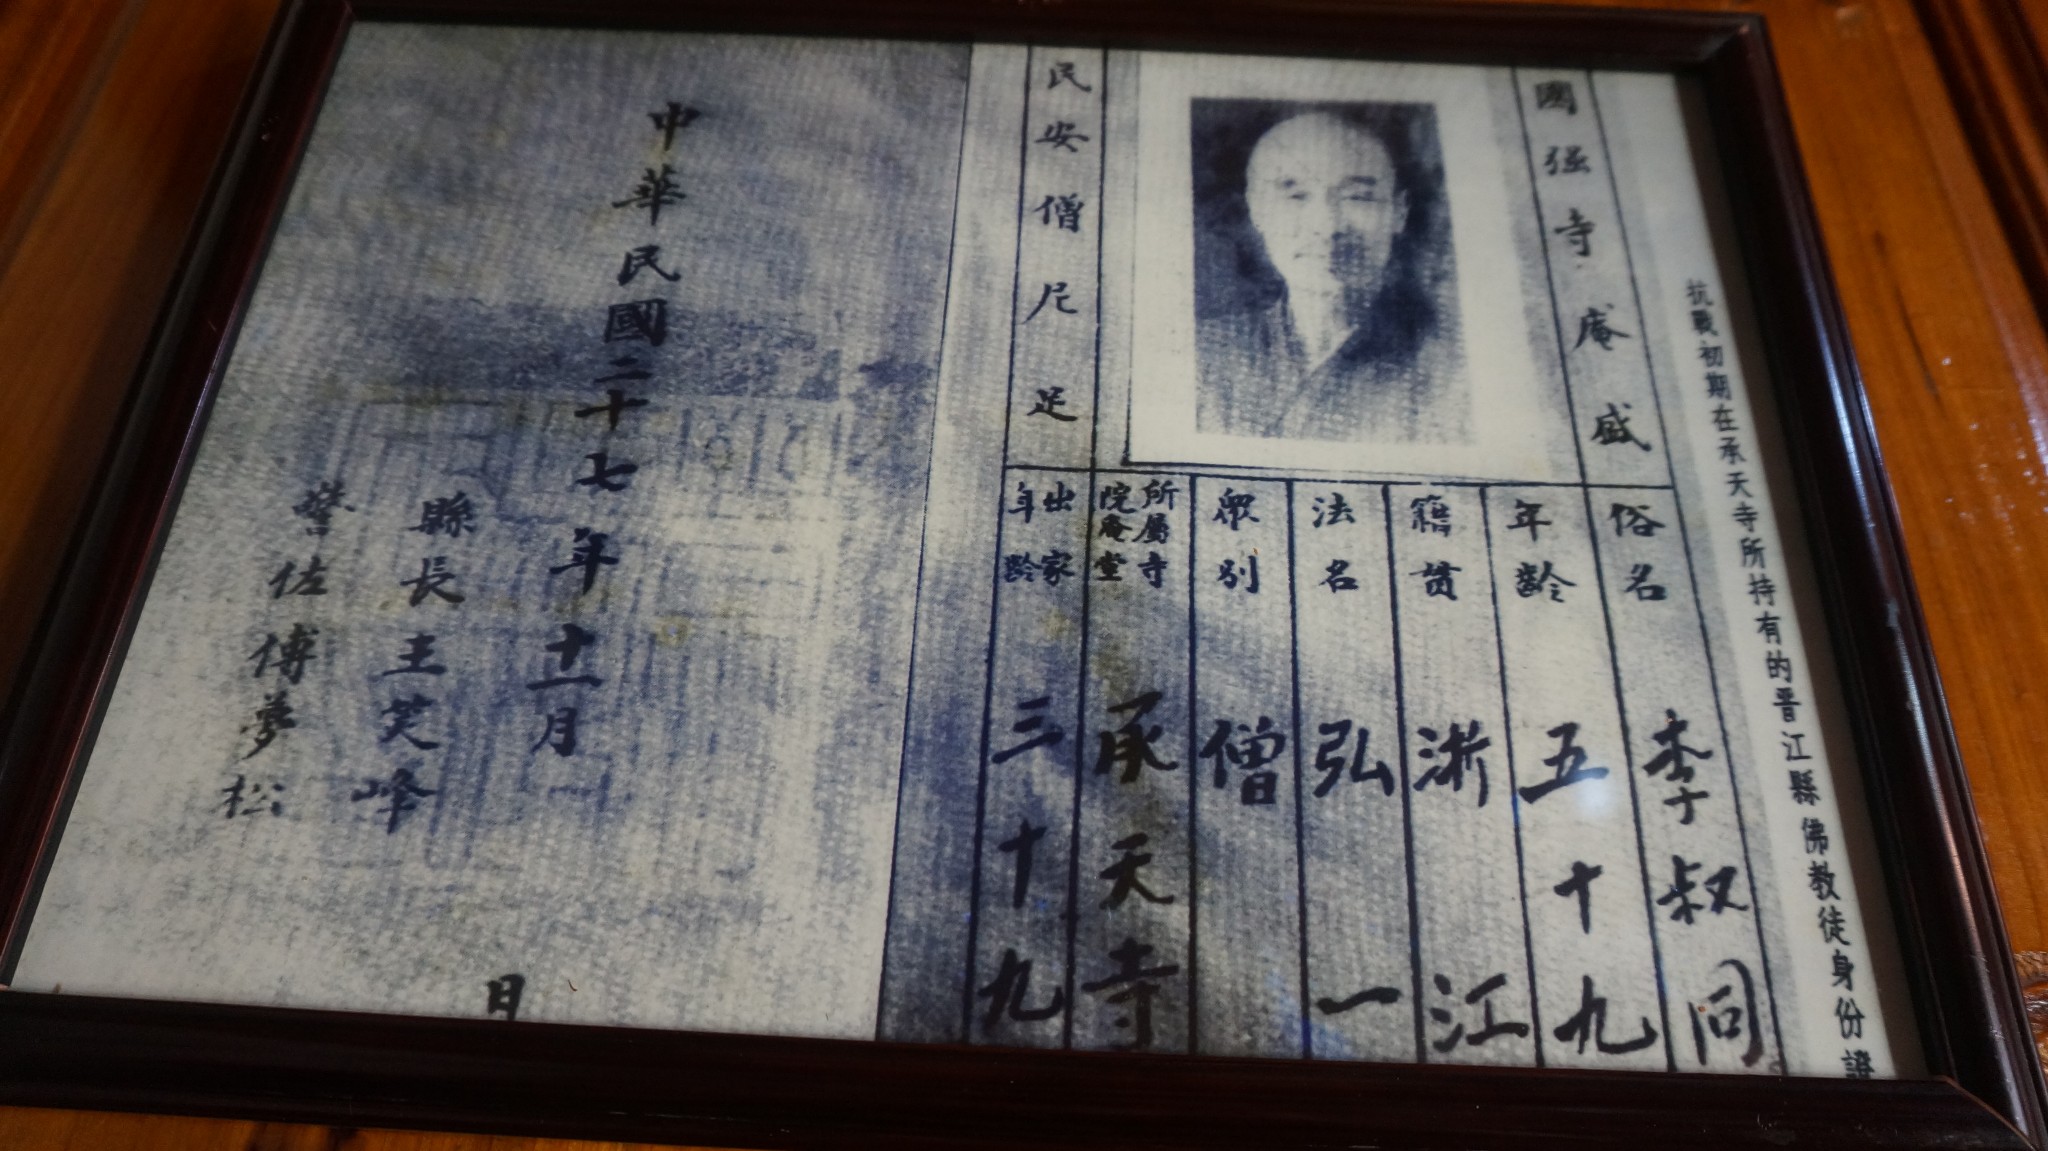 抗戰初期在承天寺所持有的晋江縣佛教徒身份證
國强寺庵盛
民安僧尼足
俗名 李叔同
年齡 五十九
籍貫 浙江
法名 弘一
眾別 僧
所屬寺院庵堂 承天寺
出家年齡 三十九
中華民國二十七年十一月 日
縣長王笑峰
警佐傅夢松